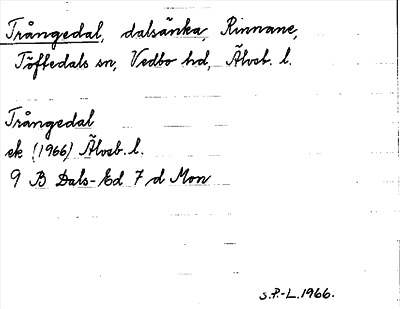 Trångedal, dalsänka, Rinnane,
Töftedals sn, Vedbo hd, Älvsb. l.
Trångedal
ek (1966) Älvsb. l.
9 B Dals-Ed 7 d Mon
S.P.-L. 1966.